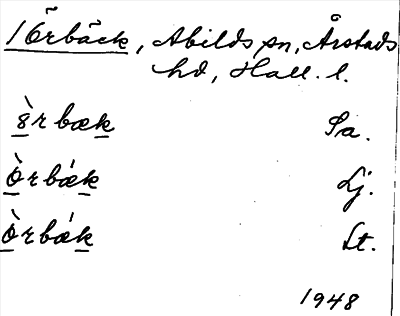 1 Örbäck, Abilds sn, Årstads
hd, Hall. l.
ὸrbæk Sa.
òrbæ̀k Lj.
òrbæ̀k Lt.
1948